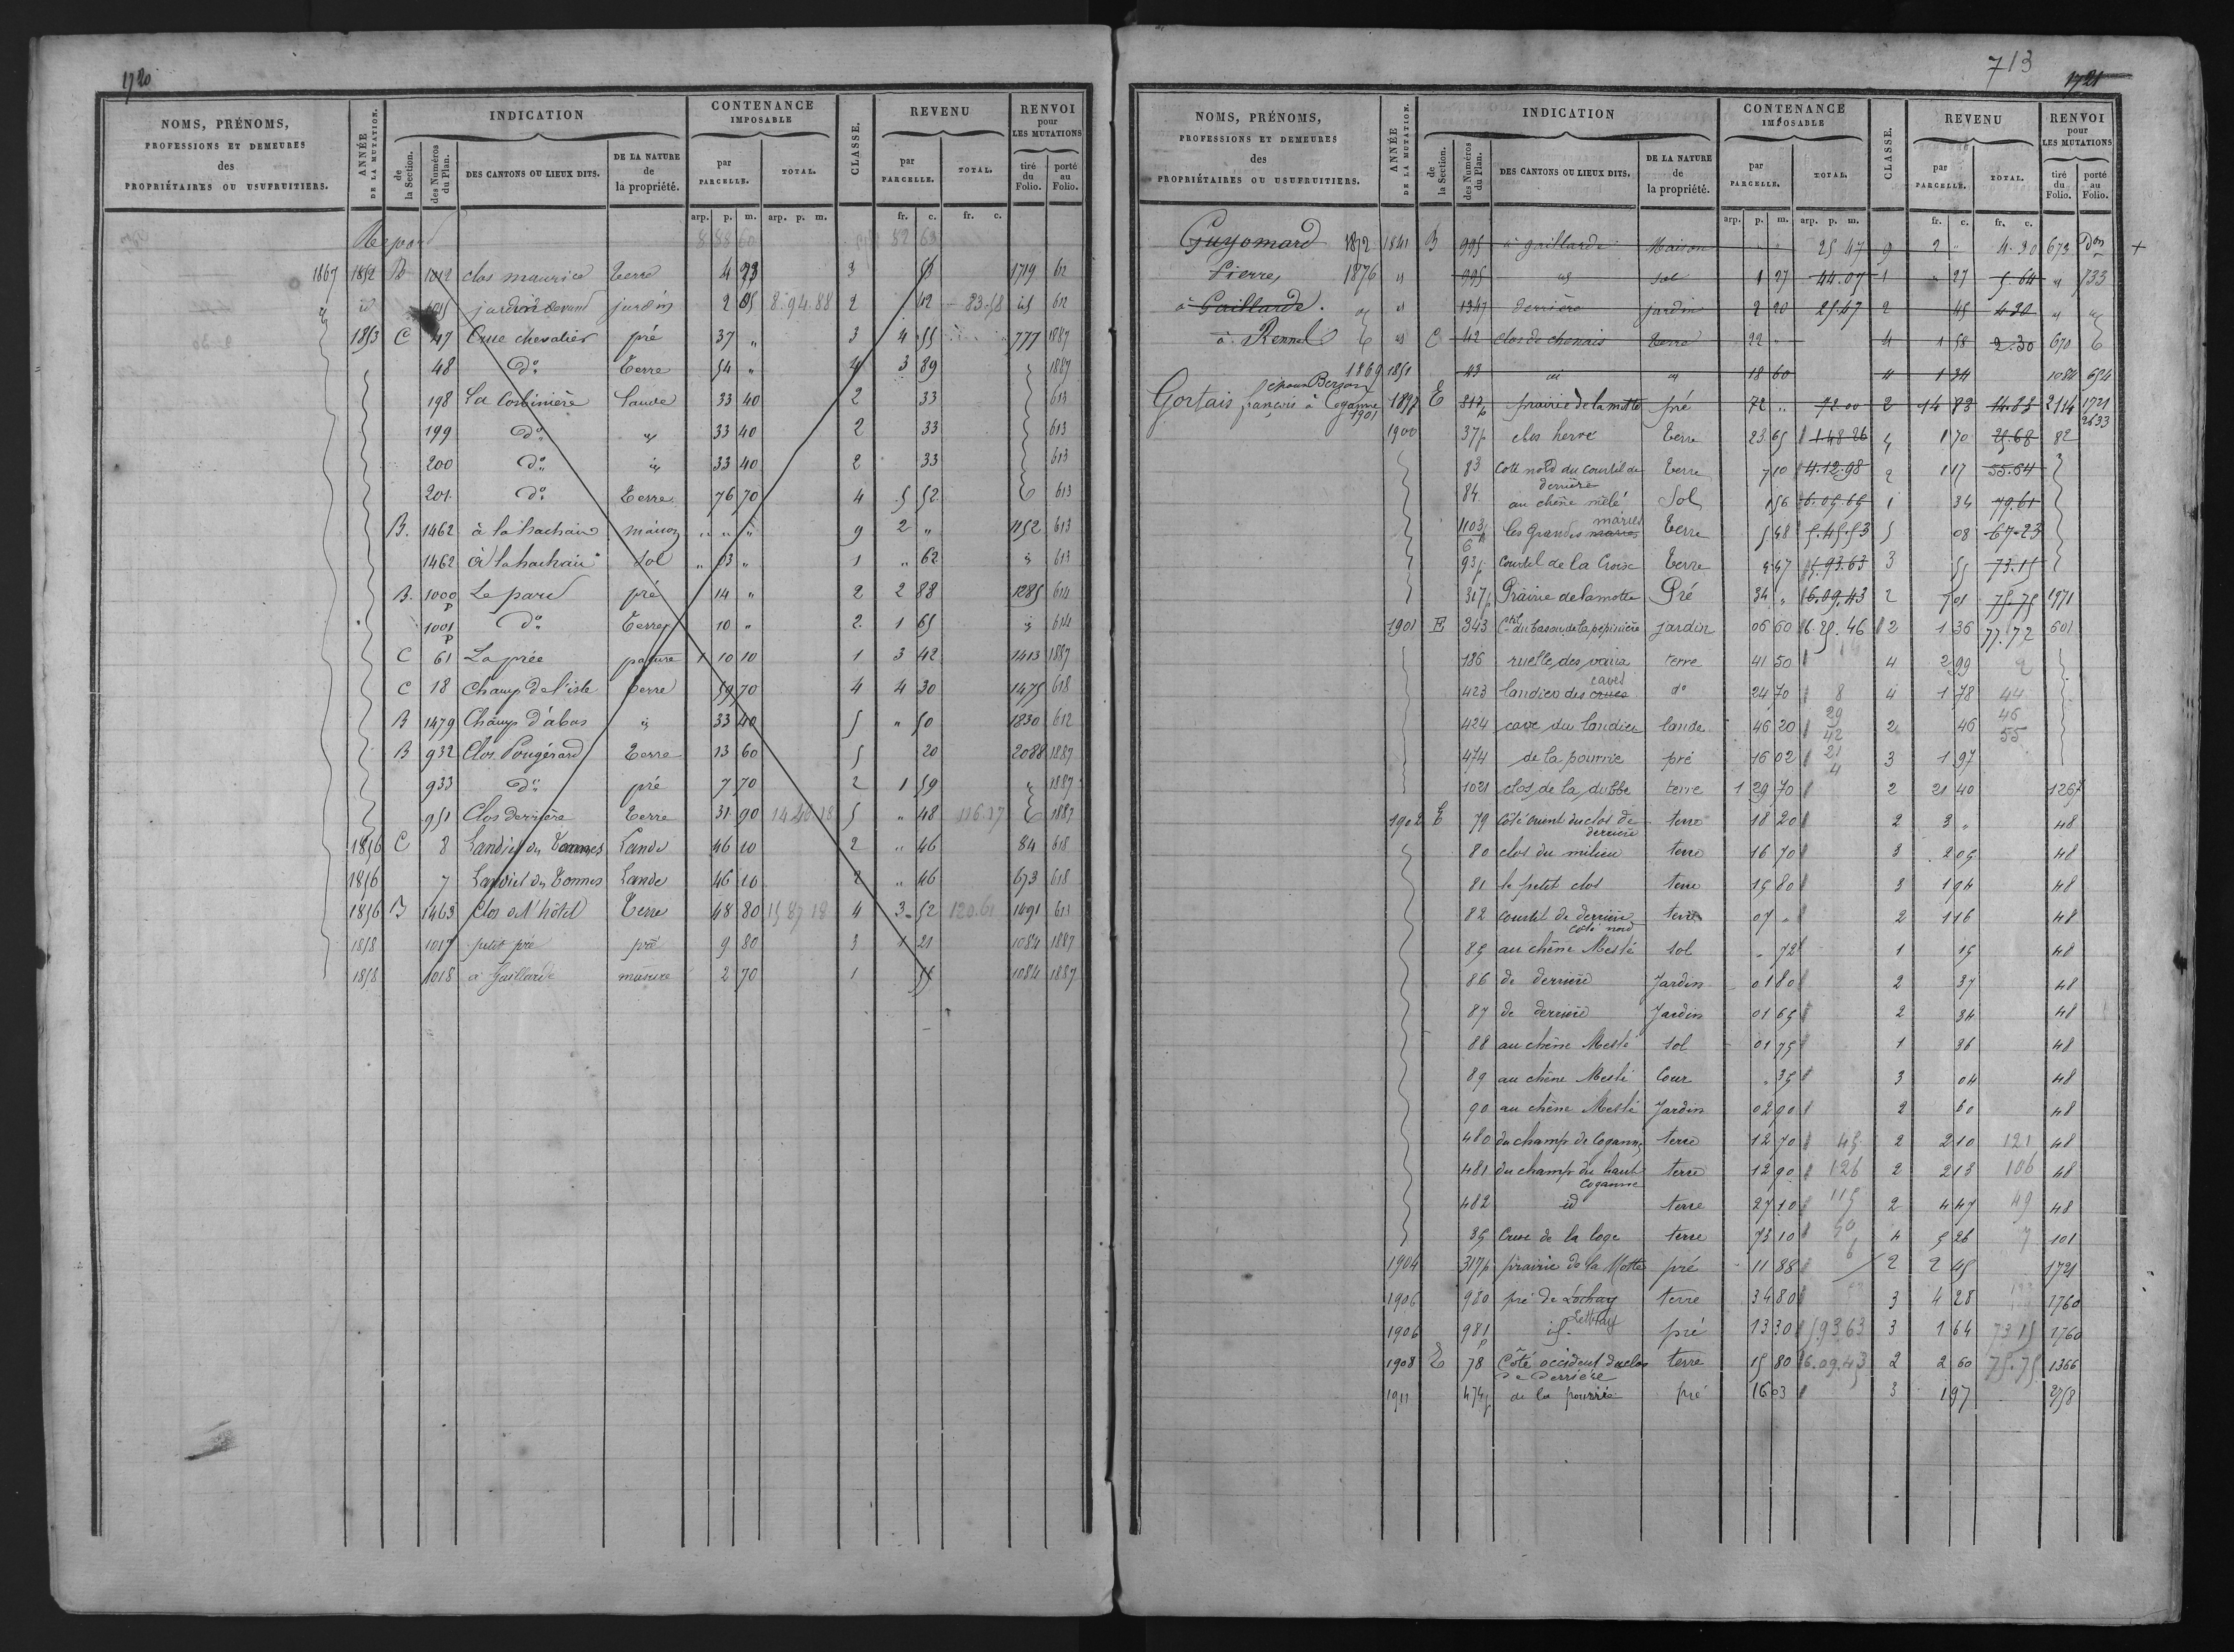 1720
NOMS, PRÉNOMS, PROFESSIONS ET DEMEURES des PROPRIÉTAIRES OU USUFRUITIERS.
ANNÉE DE LA MUTATION.
INDICATION
de la Section.
des Numéros du Plan.
DES CANTONS OU LIEUX DITS.
DE LA NATURE de la propriété.
CONTENANCE IMPOSABLE
par PARCELLE.
TOTAL.
CLASSE.
REVENU
par PARCELLE.
TOTAL.
RENVOI pour LES MUTATIONS
tiré du Folio.
porté au Folio.
arp. p. m. arp. p. m. fr. c. fr. c.
Report 8 88 60 82 63
1867 1852 B 1012 clos maurice terre 4 23 3 1719 612
id jardin devant jardin 2 05 8.94.88 2 42 83.58 id 612
1853 C 47 Crue chevalier pré 37 " 3 4 55 777 1887
48 d° terre 54 " 4 3 89 1887
198 La Corbinière Lande 33 40 2 33 613
199 d° id 33 40 2 33 613
200 d° id 33 40 2 33 613
201 d° Terre 76 70 4 5 52 613
B. 1462 à la hachaie maison " " " 9 2 " 1152 613
1462 à la hachaie sol " 03 " 1 " 62 " 613
B. 1000 p Le parc pré 14 " 2 2 88 1285 614
1001 p d° Terre 10 " 2 1 65 " 614
C 61 La prée pature 1 10 10 1 3 42 1413 1887
C 18 Champ de l'isle terre 59 70 4 4 30 1475 618
B 1479 Champ d'abas id 33 40 5 " 50 1830 612
B 932 Clos Pougérard Terre 13 60 5 20 2088 1887
933 d° pré 7 70 2 1 59 " 1887
951 Clos derrière Terre 31 90 14 40 18 5 " 48 116.17 1887
1856 C 8 Landiel des Tonnes Lande 46 10 2 " 46 84 618
1856 7 Landiel des Tonnes Lande 46 10 2 " 46 673 618
1856 B 1463 Clos de l'hôtel Terre 48 80 15 87 18 4 3 52 120.61 1491 613
1858 1017 petit pré pré 9 80 3 1 21 1084 1887
1858 1018 à Gaillarde masure 2 70 1 55 1084 1887
713
1721
NOMS, PRÉNOMS, PROFESSIONS ET DEMEURES des PROPRIÉTAIRES OU USUFRUITIERS.
ANNÉE DE LA MUTATION.
INDICATION
de la Section.
des Numéros du Plan.
DES CANTONS OU LIEUX DITS.
DE LA NATURE de la propriété.
CONTENANCE IMPOSABLE
par PARCELLE.
TOTAL.
CLASSE.
REVENU
par PARCELLE.
TOTAL.
RENVOI pour LES MUTATIONS
tiré du Folio.
porté au Folio.
arp. p. m. arp. p. m. fr. c. fr. c.
Guyomard 1872 1841 B 995 à gaillarde Maison " " 25 47 9 2 " 4.30 673 +
Pierre, 1876 id 995 id sol 1 27 44.07 1 " 27 5.64 " 733
à Gaillarde. id 1347 derrière jardin 2 20 25.47 2 45 4 30 "
à Rennes id C 42 clos de chenais terre 22 " 4 1 58 2.30 670
1869 1851 43 id id 18 60 4 1 34 1084 654
Gortais françois époux Berson à Coganne 1901 1898 E 317 p prairie de la motte pré 72 " 72 00 2 14 83 14.83 2114 1721 2633
1900 37 p clos hervé Terre 23 65 1.48 26 4 1 70 25.68 82
83 Coté nord du courtil de derrière Terre 7 10 4.12.98 2 1 17 55.64
84 au chêne mêlé Sol 1 56 6.05.65 1 34 79.61
1103 p les grandes mares Terre 5 48 5.45.53 5 08 67.23
93 p courtil de la Croix Terre 5 47 5.93.63 3 55 73.15
317 p Prairie de la motte Pré 34 " 6.09.43 2 7 01 75.75 1971
1901 E 343 Ctil du bas ou de la pépinière jardin 06 60 6.25.46 2 1 36 77.72 601
186 ruelle des vaux terre 41 50 4 2 99
423 landieu des caves d° 24 70 8 4 1 78 44
424 cave du landieu lande 46 20 29 42 2 46 46 55
474 de la pourrie pré 16 02 21 4 3 1 97
1021 clos de la dubbe terre 1 29 70 2 21 40 1267
1902 E 79 côté orient du clos de derriere terre 18 20 2 3 " 48
80 clos du milieu terre 16 70 3 2 05 48
81 le petit clos terre 15 80 3 1 94 48
82 courtil de derriere côté nord terre 07 " 2 1 16 48
85 au chêne Meslé sol " 72 1 15 48
86 de derrière Jardin 01 80 2 37 48
87 de derrière Jardin 01 65 2 34 48
88 au chêne Meslé sol 01 75 1 36 48
89 au chêne Meslé Cour " 35 3 04 48
90 au chêne Meslé Jardin 02 90 2 60 48
480 du champ de Coganne terre 12 70 45 2 2 10 121 48
481 du champ du haut Coganne terre 12 90 126 2 2 13 106 48
482 id terre 27 10 115 2 4 47 49 48
35 Crue de la loge terre 73 10 50 6 4 5 26 7 101
1904 317 p prairie de la Motte pré 11 88 2 2 45 1721
1906 980 pré de Lochay Lethay terre 34 80 3 4 28 1760
1906 981 p id pré 13 30 5.93 63 3 1 64 73 15 1760
1908 E 78 Côté occident du clos de derrière terre 15 80 6.09.43 2 2 60 75.75 1366
1911 474 p de la pourrie pré 16 03 3 1 97 2758